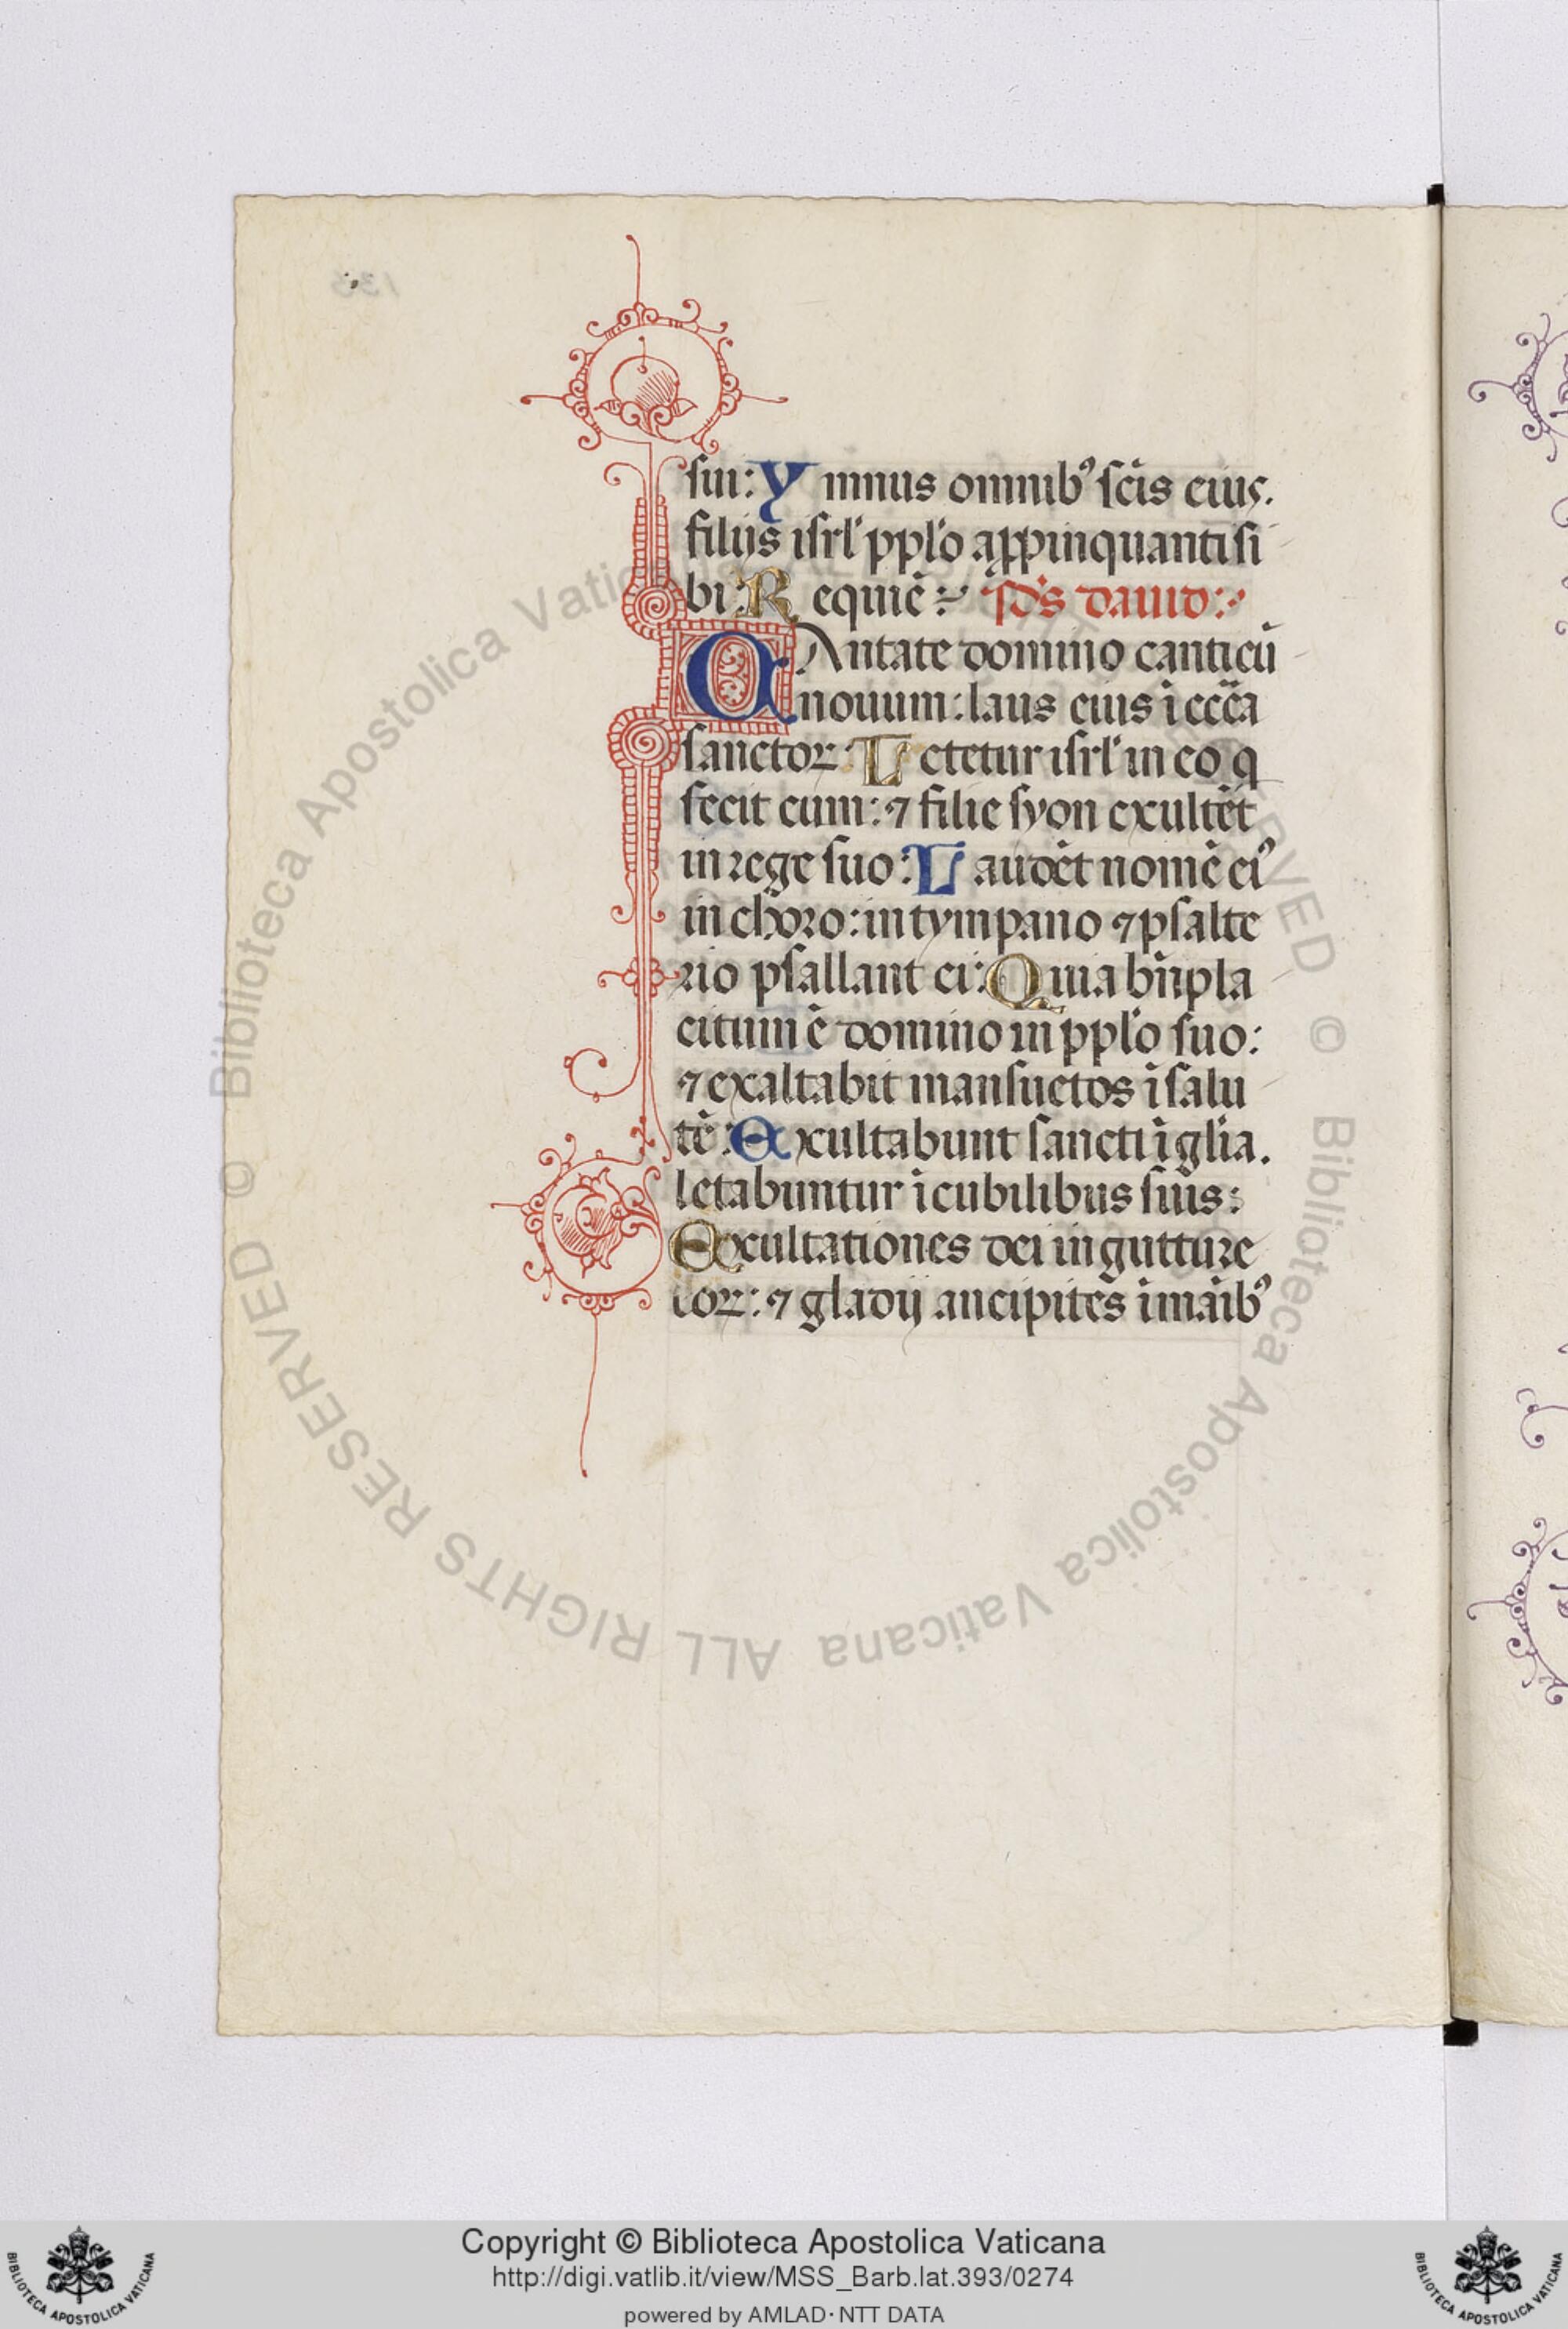 sui: Ymnus omnibꝰ sc̄is eius.
filijs isrl' ppl'o appinquanti si
bi: Requiē ps̄ dauid:
CAntate domino canticū
nouum: laus eius ī eccīa
sanctoꝝ: Letetur isrl' in eo q
fecit eum: ⁊ filie syon exultēt
in rege suo: Laudēt nomē eiꝰ
in choro: in tympano ⁊ psalte
rio psallant ei: Quia bn̄pla
citum ē domino in ppl'o suo:
⁊ exaltabit mansuetos ī salu
tē: Exultabunt sancti ī gl'ia.
letabuntur ī cubilibus suis:
Exultationes dei in gutture
ioꝝ: ⁊ gladij ancipites ī māibꝰ
© Biblioteca Apostolica Vaticana ALL RIGHTS RESERVED © Biblioteca Apostolica Vaticana ALL RIGHTS RESERVED
Copyright © Biblioteca Apostolica Vaticana
http://digi.vatlib.it/view/MSS_Barb.lat.393/0274
powered by AMLAD · NTT DATA
BIBLIOTECA APOSTOLICA VATICANA
BIBLIOTECA APOSTOLICA VATICANA